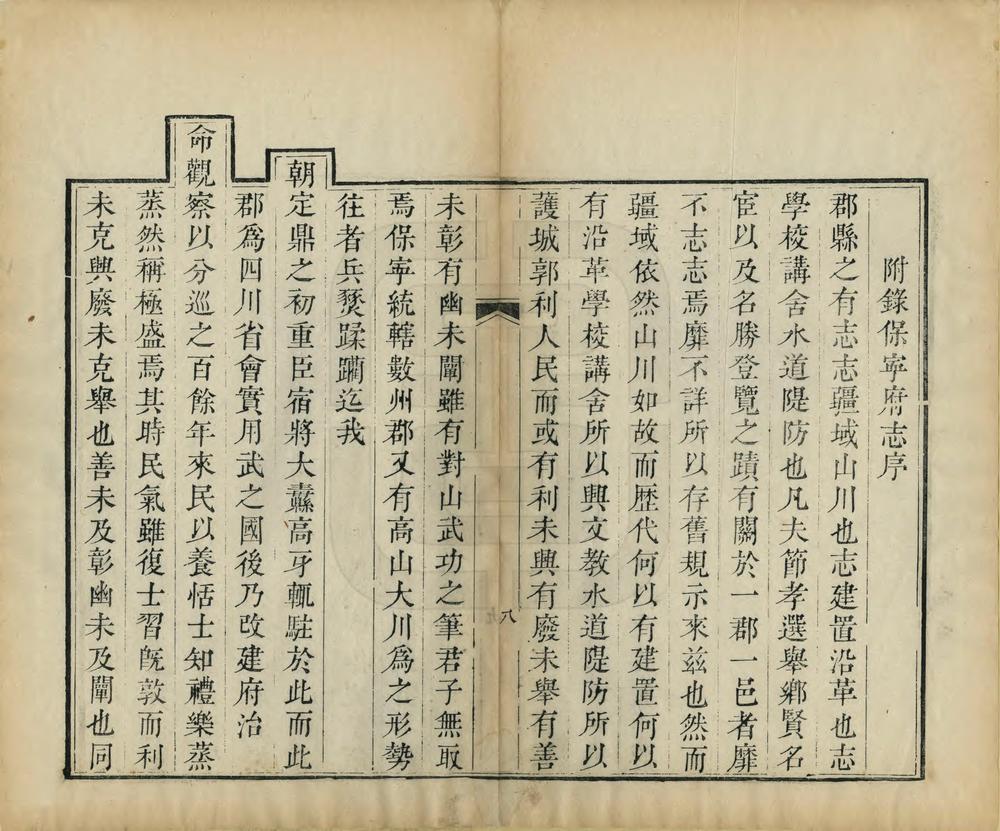 附錄保寧府志序
郡縣之有志志疆域山川也志建置沿革也志
學校講舍水道隄防也凡夫節孝選舉鄉賢名
宦以及名勝登覽之蹟有關於一郡一邑者靡
不志志焉靡不詳所以存舊規示來兹也然而
疆域依然山川如故而歷代何以有建置何以
有沿革學校講舍所以興文教水道隄防所以
護城郭利人民而或有利未興有廢未舉有善
八
未彰有幽未闡雖有對山武功之筆君子無取
焉保寧統轄數州郡又有高山大川爲之形勢
往者兵燹蹂躪迄我
朝定鼎之初重臣宿將大纛高牙輒駐於此而此
郡爲四川省會實用武之國後乃改建府治
命觀察以分巡之百餘年來民以養恬士知禮樂蒸
蒸然稱極盛焉其時民氣雖復士習旣敦而利
未克興廢未克舉也善未及彰幽未及闡也同